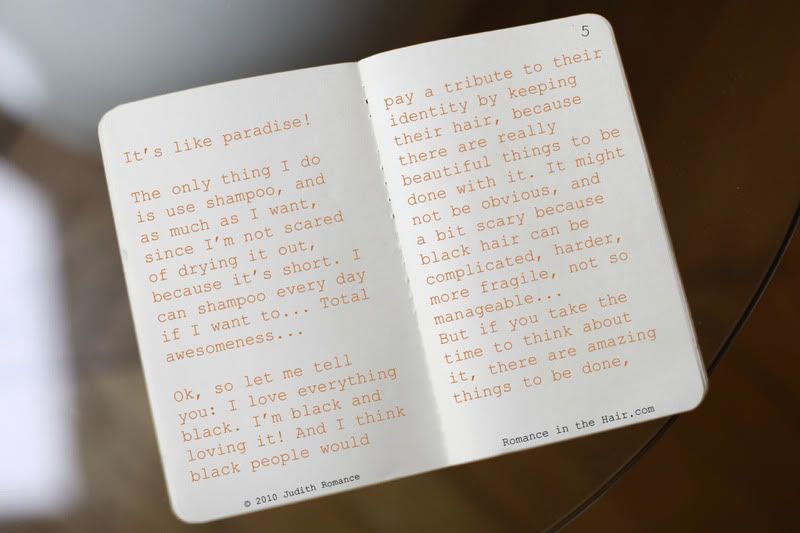 It's like paradise!
The only thing I do
is use shampoo, and
as much as I want,
since I'm not scared
of drying it out,
because it's short. I
can shampoo every day
if I want to... Total
awesomeness...
Ok, so let me tell
you: I love everything
black. I'm black and
loving it! And I think
black people would
© 2010 Judith Romance
5
pay a tribute to their
identity by keeping
their hair, because
there are really
beautiful things to be
done with it. It might
not be obvious, and
a bit scary because
black hair can be
complicated, harder,
more fragile, not so
manageable...
But if you take the
time to think about
it, there are amazing
things to be done,
Romance in the Hair.com